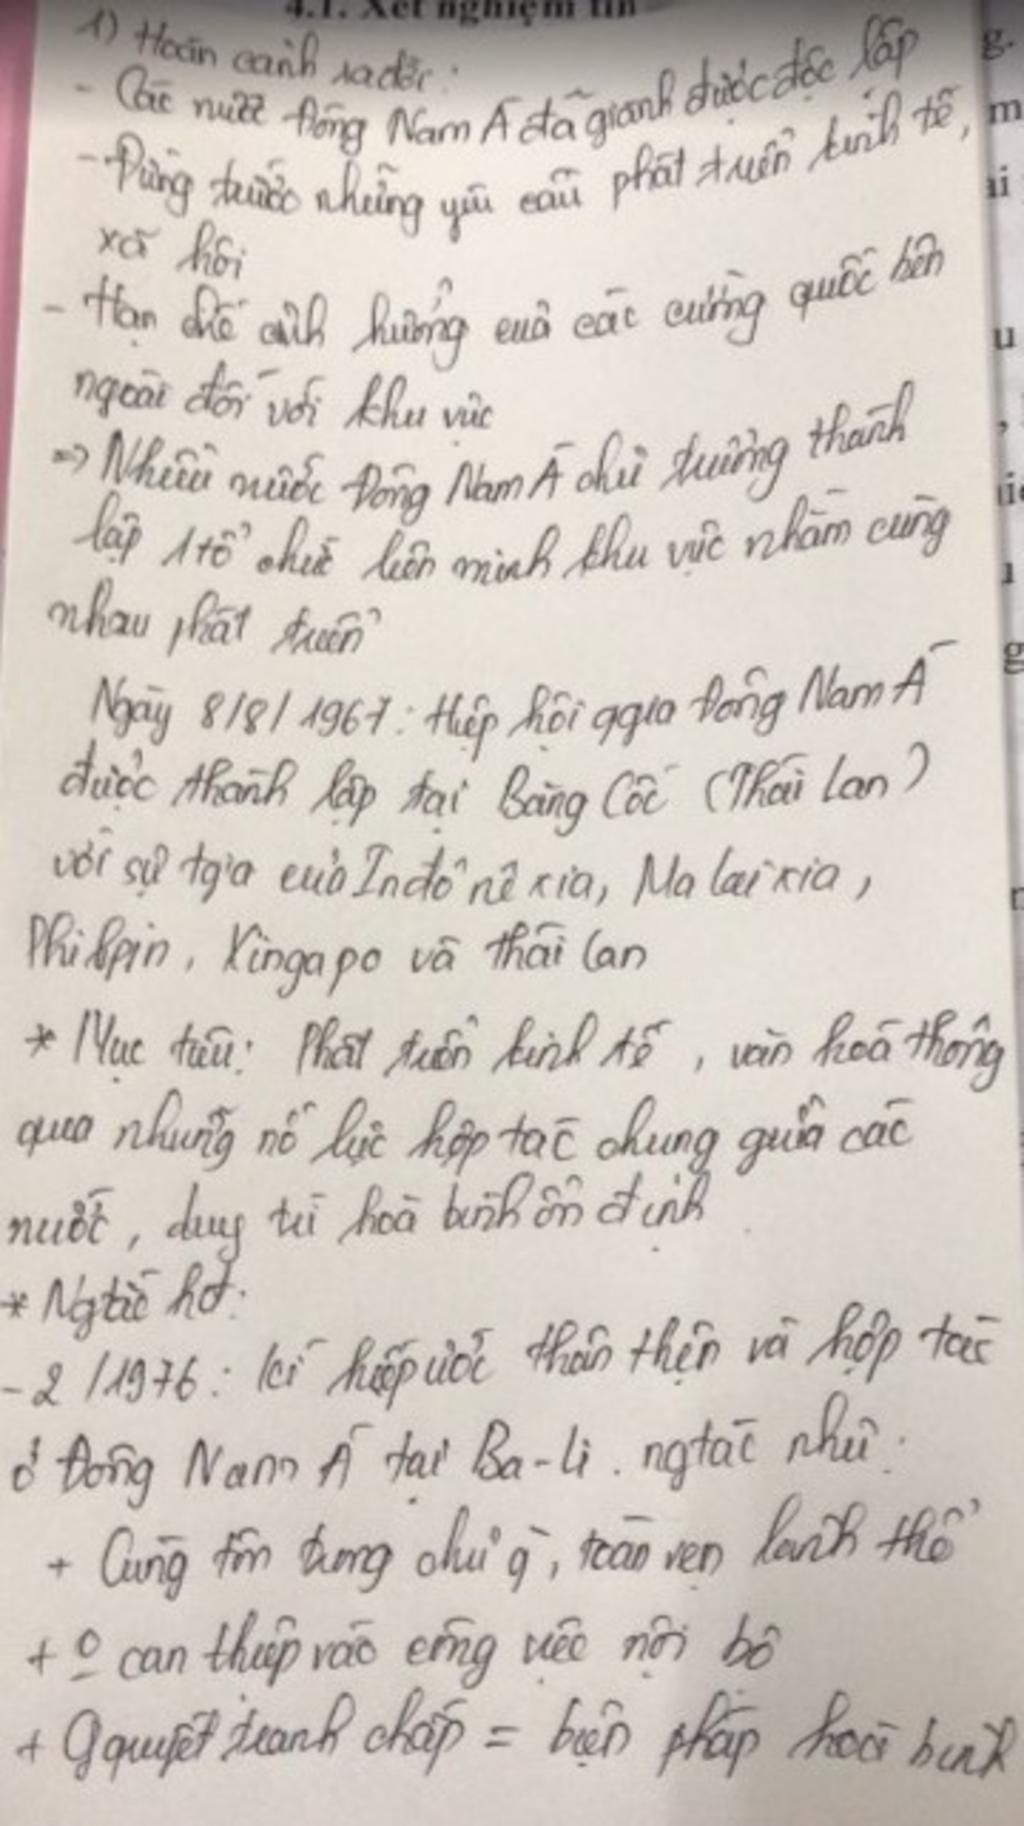 4.1. Xét nghiệm tìn
1) Hoàn cảnh ra đời:
- Các nước Đông Nam Á đã giành được độc lập
- Đứng trước những yêu cầu phát triển kinh tế,
xã hội
- Hạn chế ảnh hưởng của các cường quốc bên
ngoài đối với khu vực
=> Nhiều nước Đông Nam Á chủ trương thành
lập 1 tổ chức liên minh khu vực nhằm cùng
nhau phát triển
Ngày 8/8/1967: Hiệp hội qgia Đông Nam Á
được thành lập tại Băng Cốc (Thái Lan)
với sự tgia của Inđônêxia, Malaixia,
Philipin, Xingapo và Thái Lan
* Mục tiêu: Phát triển kinh tế, văn hoá thông
qua những nỗ lực hợp tác chung giữa các
nước, duy trì hoà bình ổn định
* Ngtắc hđ:
- 2/1976: Kí hiệp ước thân thiện và hợp tác
ở Đông Nam Á tại Ba-li. ngtắc như:
+ Cùng tôn trọng chủ q`, toàn vẹn lãnh thổ
+ o can thiệp vào công việc nội bộ
+ Gquyết tranh chấp = biện pháp hoà bình
g.
m
ài
u
,
iề
1
g
r